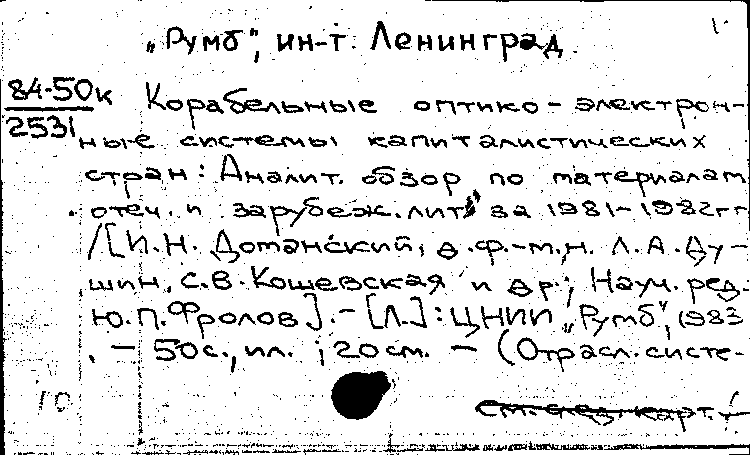 „Румб“, ин-т. Ленинград.
84-50к
2531
Корабельные оптико-электрон-
ные системы капиталистических
стран: Аналит. обзор по материалам
отеч. и зарубеж. лит. за 1981-1982гг
/[И.Н. Доманский, д.ф.-м.н. Л.А. Ду-
шин, С.В. Кошевская и др.; Науч. ред.
Ю.П. Фролов]. - [Л.]: ЦНИИ „Румб“, 1983
. - 50с., ил. ; 20см. - (Отрасл. систе-
10
см. след. карт.